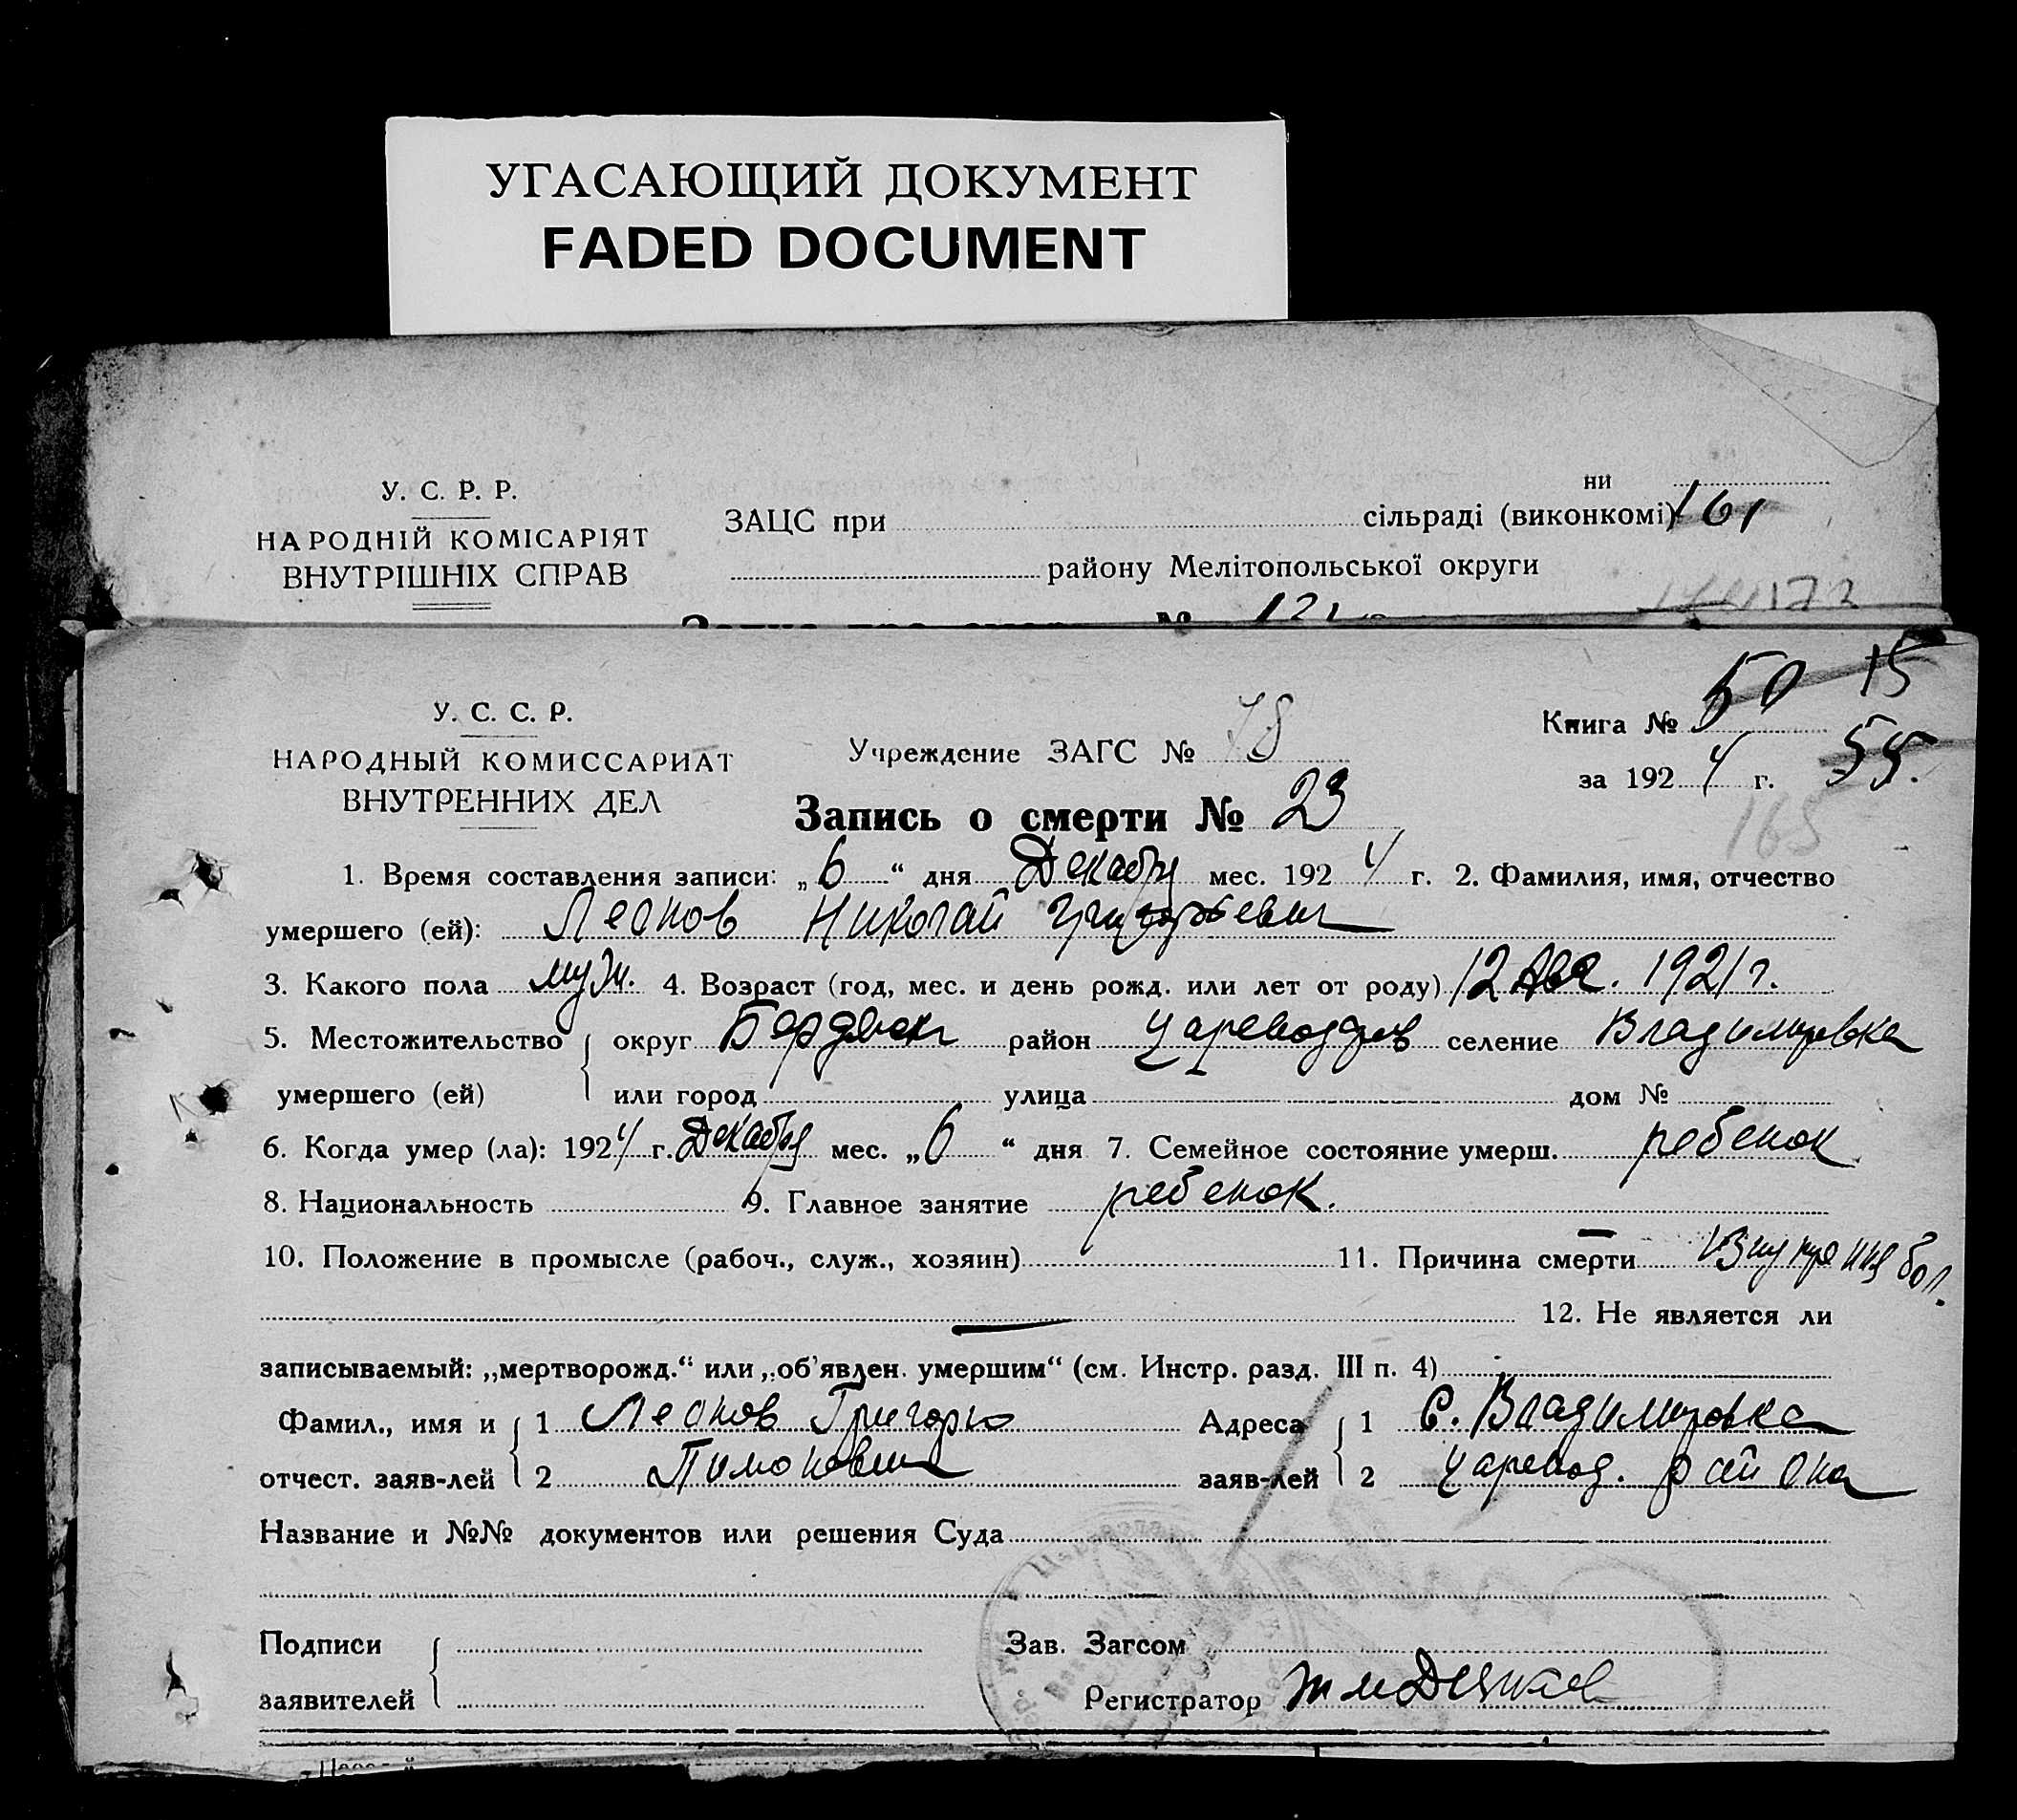 УГАСАЮЩИЙ ДОКУМЕНТ
FADED DOCUMENT
У. С. Р. Р.
НАРОДНІЙ КОМІСАРІЯТ
ВНУТРІШНІХ СПРАВ
ни
ЗАЦС при сільраді (виконкомі) 161
району Мелітопольської округи
172
№ 121
У. С. С. Р.
НАРОДНЫЙ КОМИССАРИАТ
ВНУТРЕННИХ ДЕЛ
Учреждение ЗАГС № 78
Книга № 50 15
за 1924 г. 55.
165
Запись о смерти № 23
1. Время составления записи: „6“ дня Декабря мес. 1924 г. 2. Фамилия, имя, отчество
умершего (ей): Леонов Николай Григорьевич
3. Какого пола муж. 4. Возраст (год, мес. и день рожд. или лет от роду) 12 Авг. 1921 г.
5. Местожительство округ Бердянск район Царевод селение Владимировка
умершего (ей) или город улица дом №
6. Когда умер (ла): 1924 г. Декабря мес. „6“ дня 7. Семейное состояние умерш. ребенок
8. Национальность 9. Главное занятие ребенок.
10. Положение в промысле (рабоч., служ., хозяин) 11. Причина смерти Внутреняя бол.
12. Не является ли
записываемый: „мертворожд.“ или „об'явлен. умершим“ (см. Инстр. разд. III п. 4)
Фамил., имя и 1 Леонов Григорий Адреса 1 С. Владимировка
отчест. заяв-лей 2 заяв-лей 2 Царевод. района
Название и №№ документов или решения Суда
Подписи Зав. Загсом
заявителей Регистратор